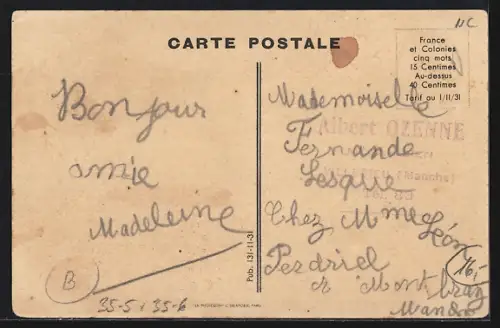 11C
CARTE POSTALE
France
et Colonies
cinq mots
15 Centimes
Au-dessus
40 Centimes
Tarif au 1/11/31
Bonjour
amie
Madeleine
Mademoiselle
Albert OZENNE
Fernande
(Manche)
Lesque
Chez Mme Léon
Perdriel
à Montbray
Manche
Pub. 131-11-31
B
35-5 35-6
16,